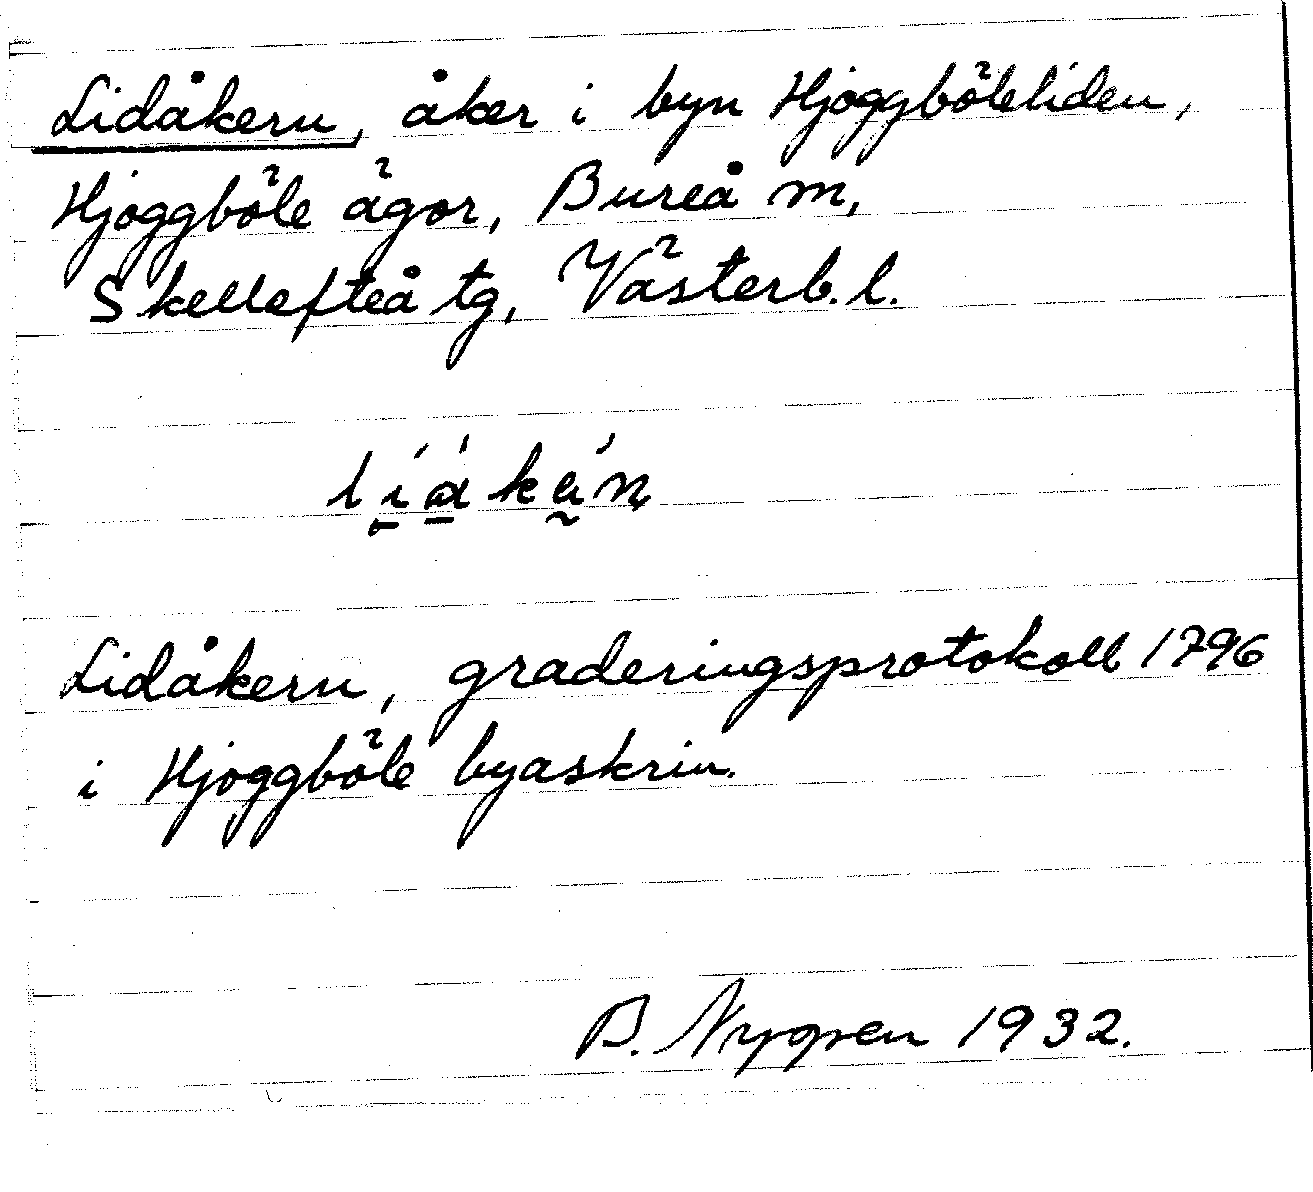 Lidåkern, åker i byn Hjoggböleliden,
Hjoggböle ägor, Bureå m,
Skellefteå tg, Västerb. l.
Lidåkern, graderingsprotokoll 1796
i Hjoggböle byaskrin.
B. 1932.